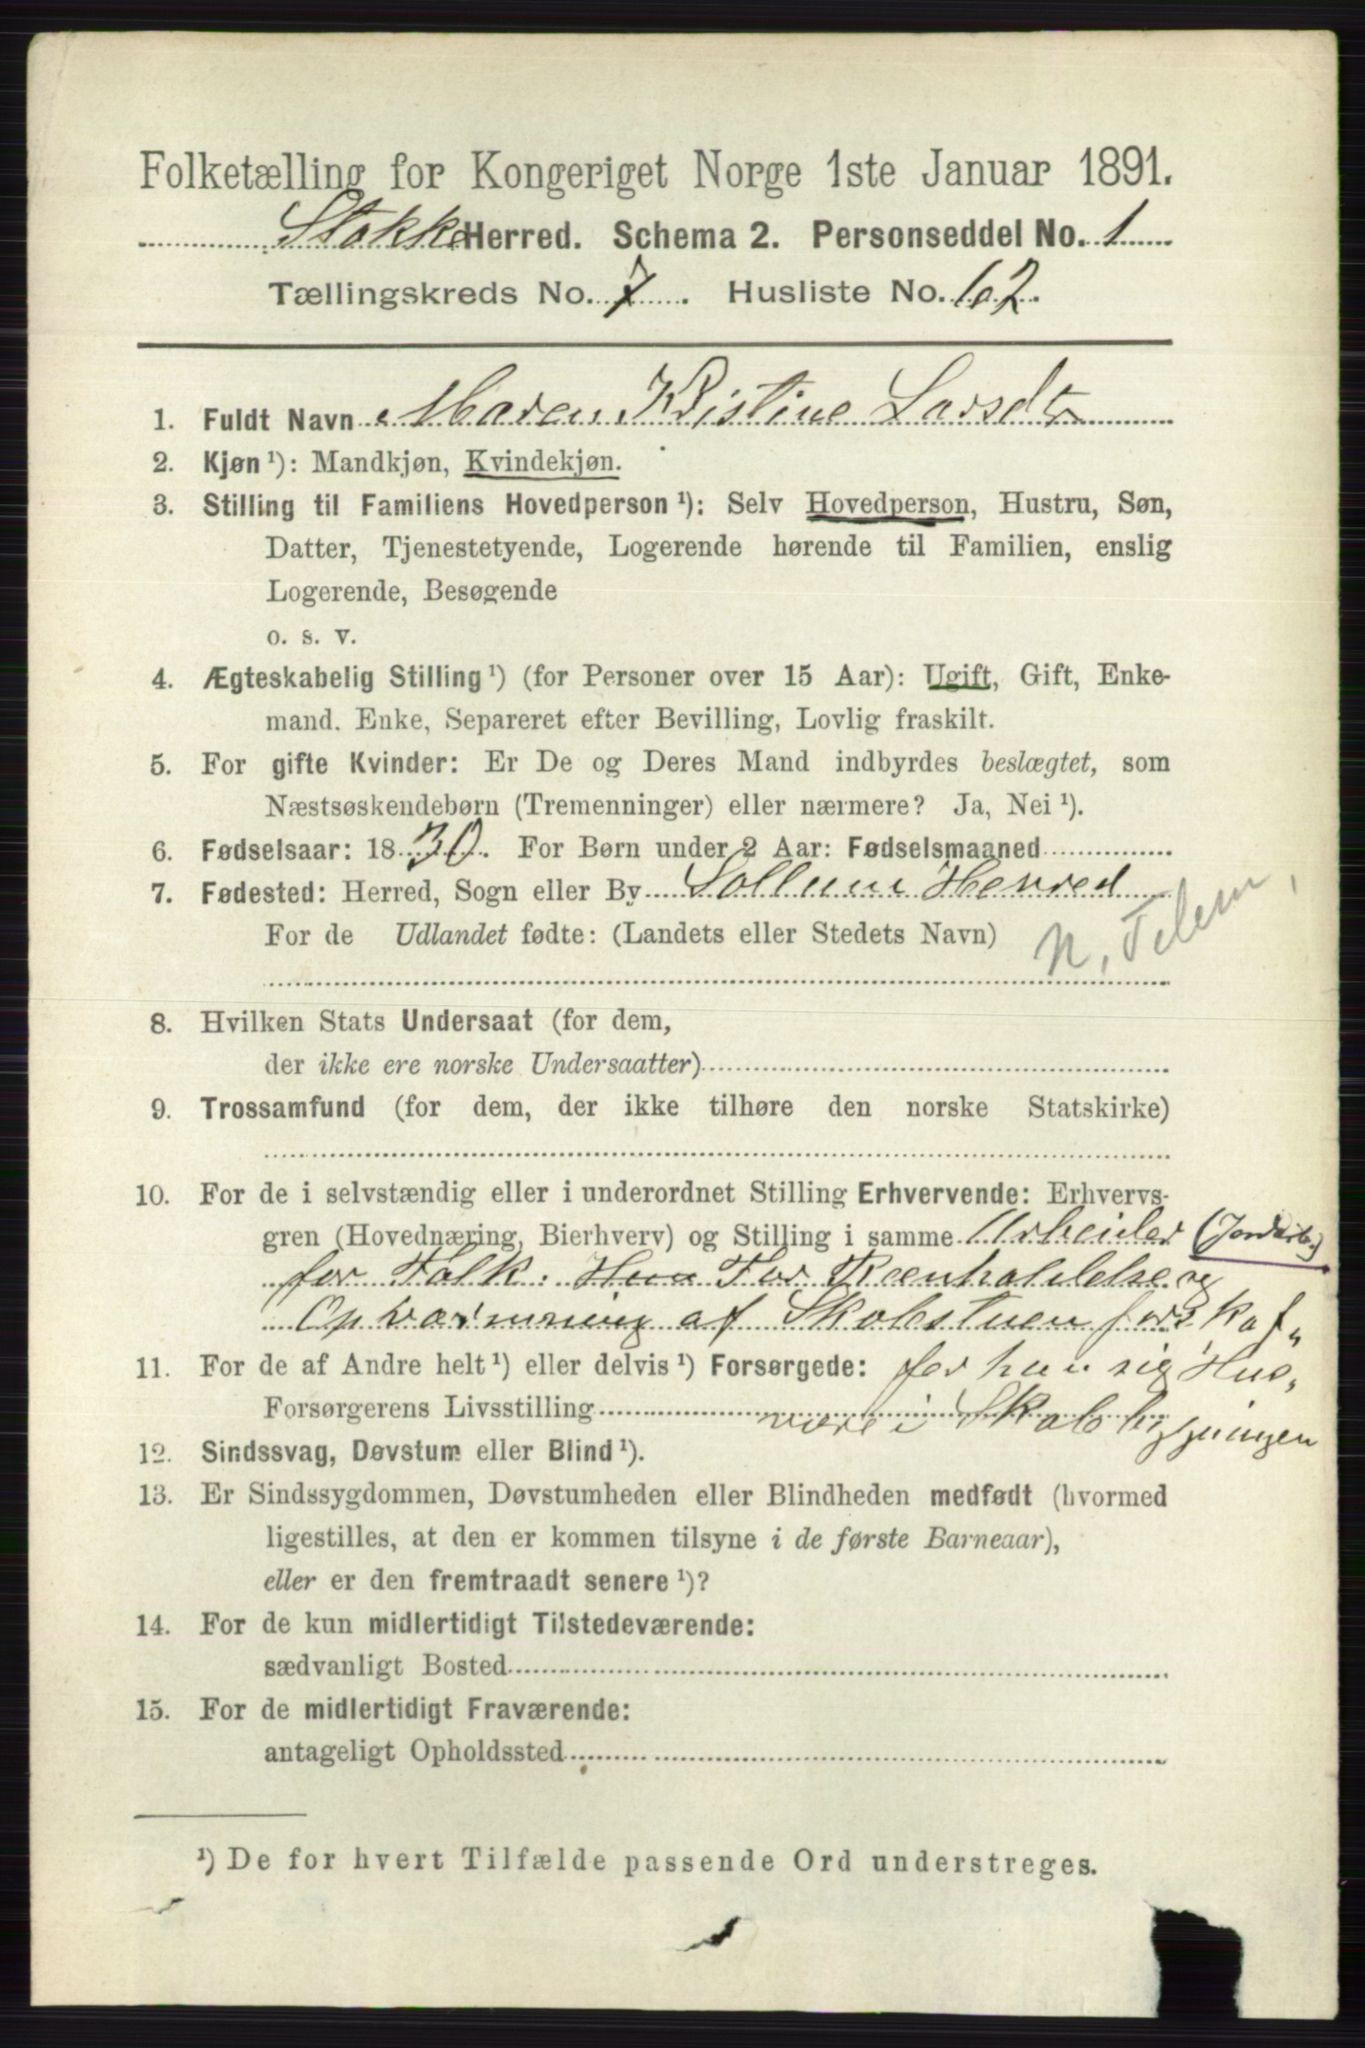 Folketælling for Kongeriget Norge 1ste Januar 1891.
Stokke Herred. Schema 2. Personseddel No. 1
Tællingskreds No. 7. Husliste No. 62.
1. Fuldt Navn Maren Kristine Larsdtr
2. Kjøn ¹): Mandkjøn, Kvindekjøn.
3. Stilling til Familiens Hovedperson ¹): Selv Hovedperson, Hustru, Søn,
Datter, Tjenestetyende, Logerende hørende til Familien, enslig
Logerende, Besøgende
o. s. v.
4. Ægteskabelig Stilling ¹) (for Personer over 15 Aar): Ugift, Gift, Enke-
mand. Enke, Separeret efter Bevilling, Lovlig fraskilt.
5. For gifte Kvinder: Er De og Deres Mand indbyrdes beslægtet, som
Næstsøskendebørn (Tremenninger) eller nærmere? Ja, Nei ¹).
6. Fødselsaar: 1830. For Børn under 2 Aar: Fødselsmaaned
7. Fødested: Herred, Sogn eller By Sollum Herred
For de Udlandet fødte: (Landets eller Stedets Navn) N. Telem,
8. Hvilken Stats Undersaat (for dem,
der ikke ere norske Undersaatter)
9. Trossamfund (for dem, der ikke tilhøre den norske Statskirke)
10. For de i selvstændig eller i underordnet Stilling Erhvervende: Erhvervs-
gren (Hovednæring, Bierhverv) og Stilling i samme Arbeider (Jordarb.)
for Folk. Hun For Renholdelse og
Opvarmning af Skolestuen for skaf„
11. For de af Andre helt ¹) eller delvis ¹) Forsørgede: fer hun sig Hus„
Forsørgerens Livsstilling være i Skolebygningen
12. Sindssvag, Døvstum eller Blind ¹).
13. Er Sindssygdommen, Døvstumheden eller Blindheden medfødt (hvormed
ligestilles, at den er kommen tilsyne i de første Barneaar),
eller er den fremtraadt senere ¹)?
14. For de kun midlertidigt Tilstedeværende:
sædvanligt Bosted
15. For de midlertidigt Fraværende:
antageligt Opholdssted
¹) De for hvert Tilfælde passende Ord understreges.